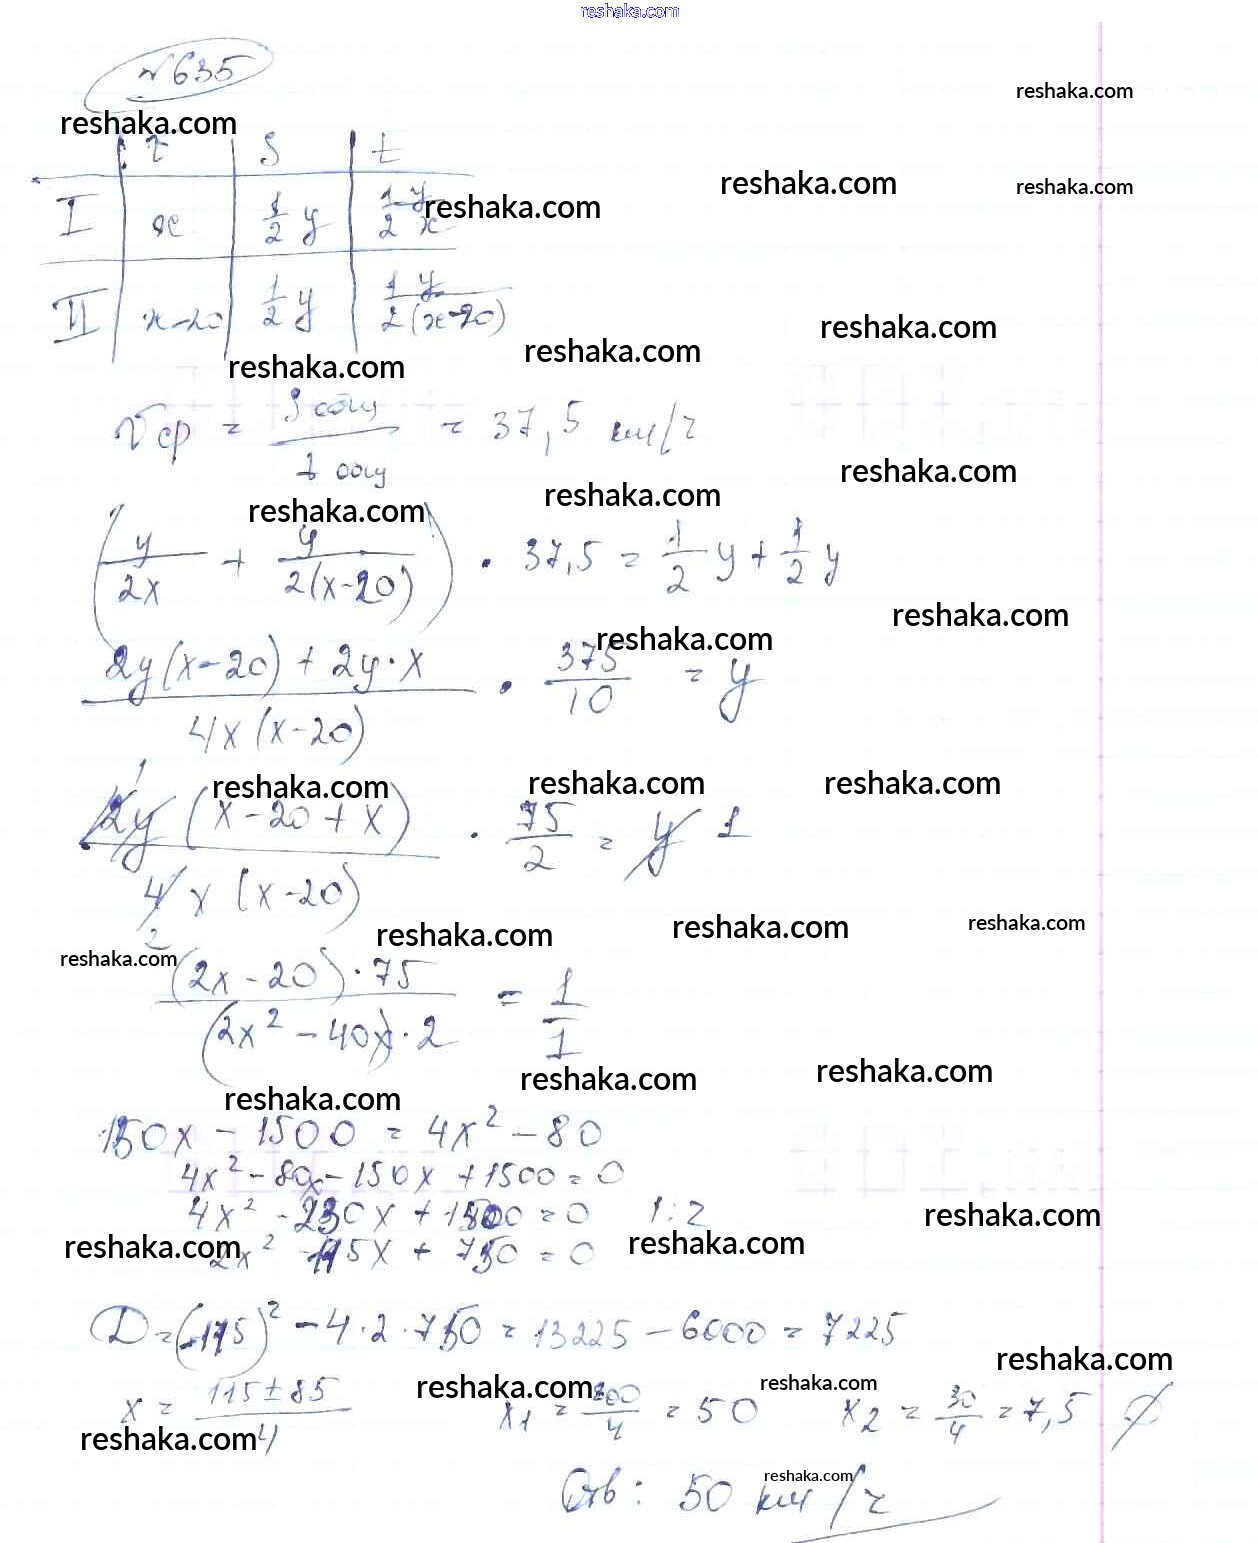 reshaka.com
№635
reshaka.com
reshaka.com
S t
reshaka.com
reshaka.com
I x 1/2 y 1/2 y/x
reshaka.com
II x-20 1/2 y 1 y/2(x-20)
reshaka.com
reshaka.com
reshaka.com
Vср = S общ / t общ = 37,5 км/ч
reshaka.com
reshaka.com
reshaka.com
(y/2x + y/2(x-20)) · 37,5 = 1/2 y + 1/2 y
reshaka.com
reshaka.com
2y(x-20) + 2y·x / 4x(x-20) · 375/10 = y
reshaka.com
reshaka.com
reshaka.com
2y (x-20+x) / 4x (x-20) · 75/2 = y 1
1
2
reshaka.com
reshaka.com
reshaka.com
reshaka.com
(2x-20)·75 / (2x²-40x)·2 = 1/1
reshaka.com
reshaka.com
reshaka.com
150x - 1500 = 4x² - 80
4x² - 80x - 150x + 1500 = 0
4x² - 230x + 1500 = 0 |:2
reshaka.com
reshaka.com
reshaka.com
2x² - 115x + 750 = 0
D = (-115)² - 4·2·750 = 13225 - 6000 = 7225
reshaka.com
reshaka.com
reshaka.com
x = 115±85 / 4 x1 = 200/4 = 50 x2 = 30/4 = 7,5 ∅
reshaka.com
reshaka.com
Отв: 50 км/ч